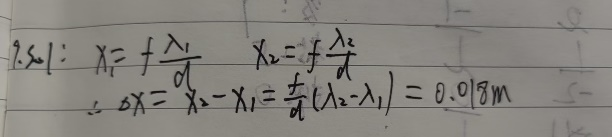 9.Sol: x₁ = f λ₁/d x₂ = f λ₂/d
∴ Δx = x₂ - x₁ = f/d (λ₂ - λ₁) = 0.018m